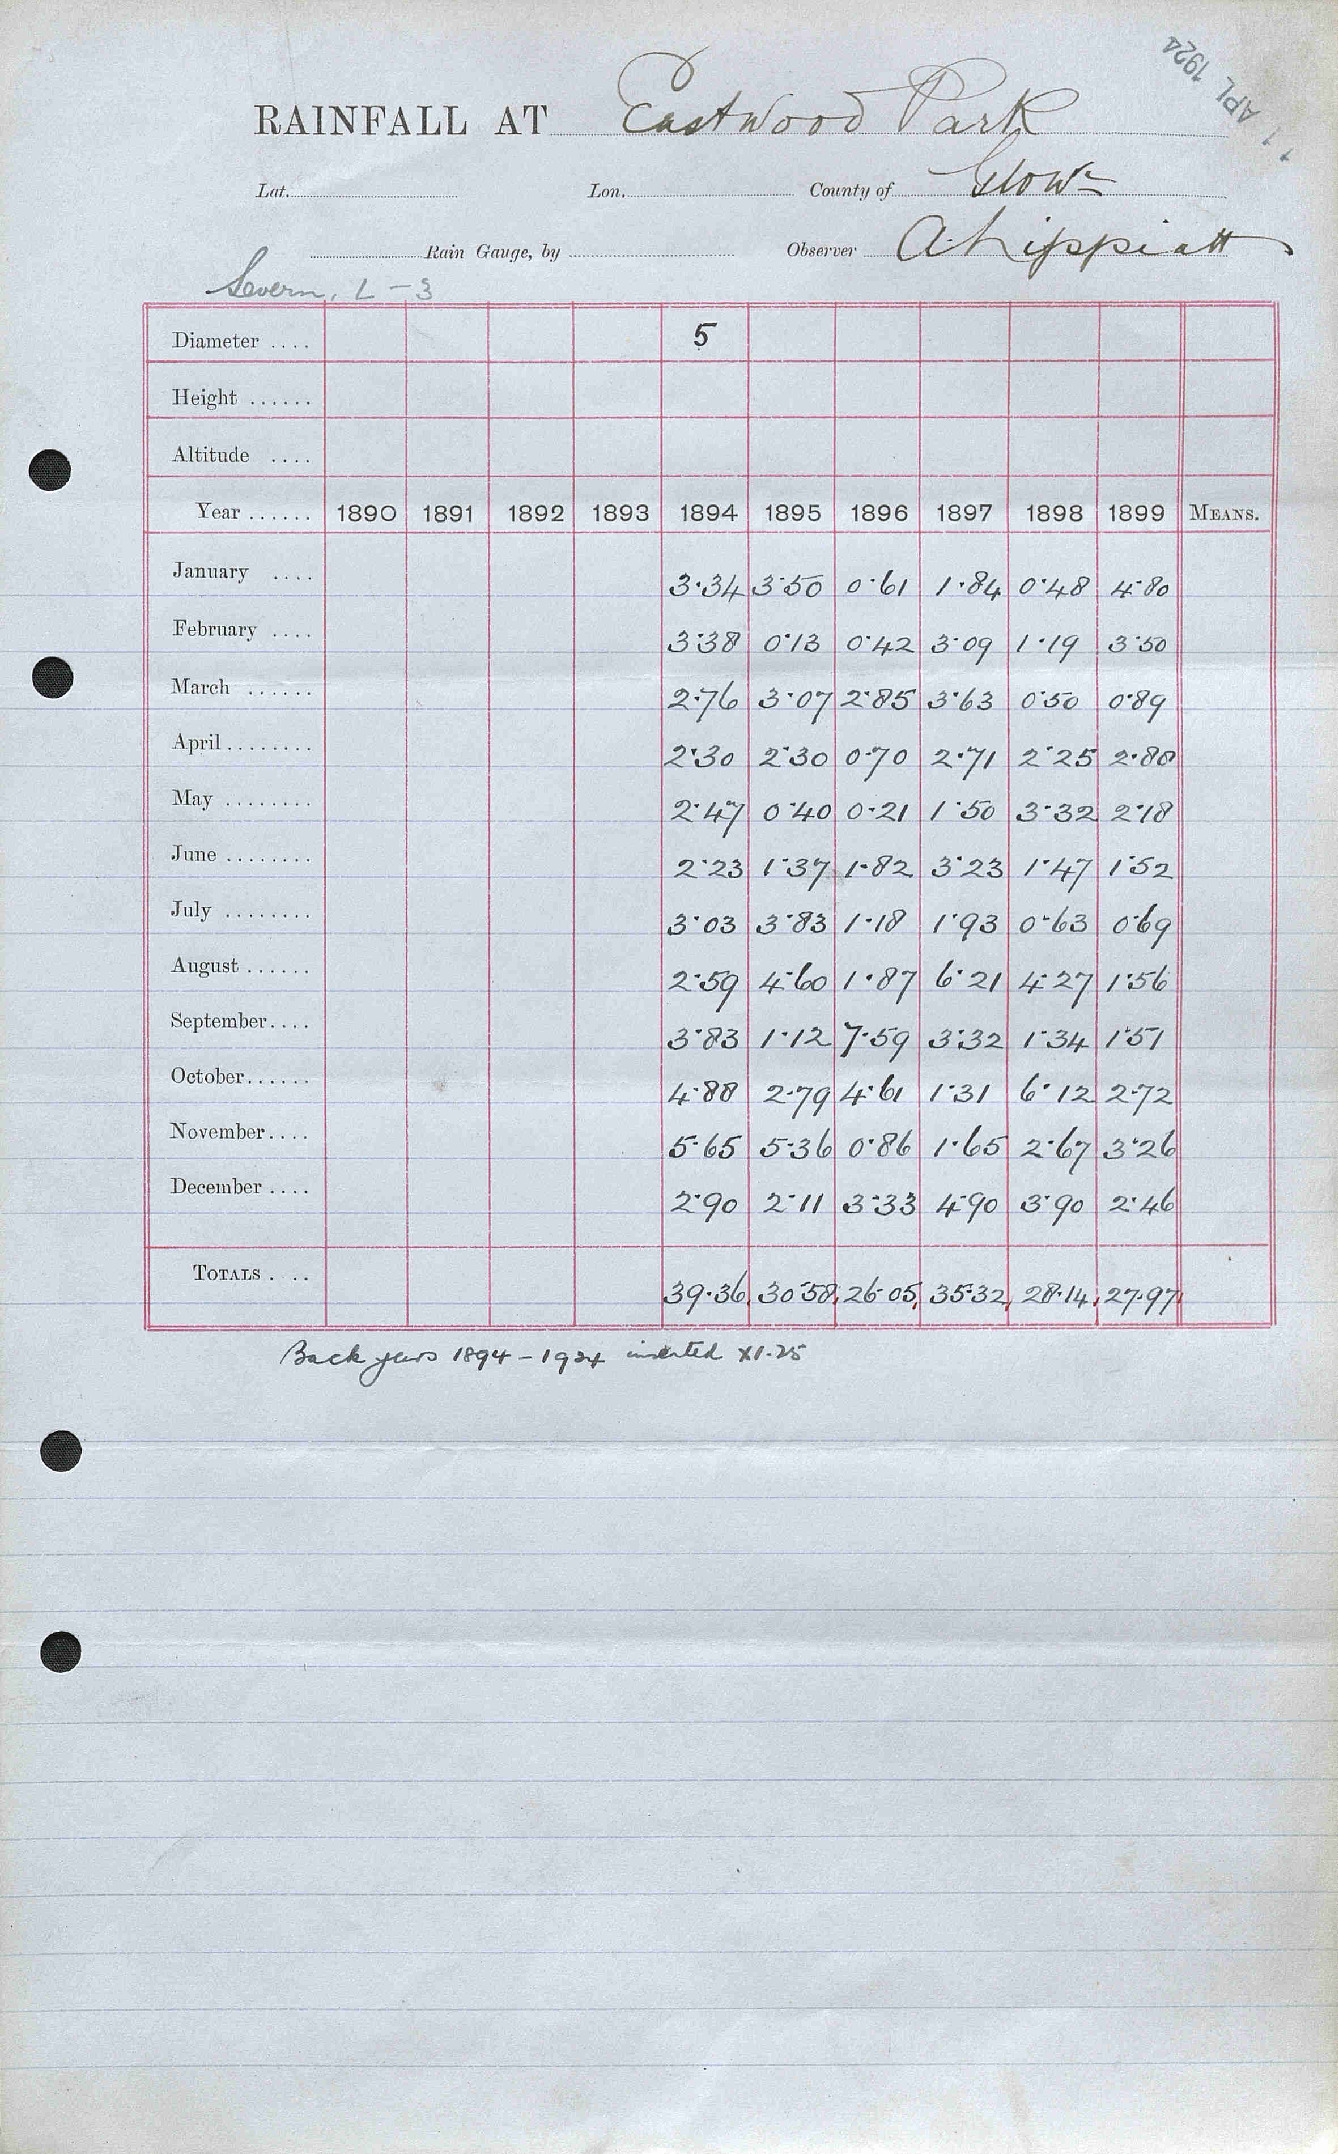 11 APL 1924
RAINFALL AT Eastwood Park
Lat. Lon. County of Glos
Rain Gauge, by Observer A. Lippiatt
Severn, L - 3
Diameter .... 5
Height ......
Altitude ....
Year ...... 1890 1891 1892 1893 1894 1895 1896 1897 1898 1899 MEANS.
January .... 3.34 3.50 0.61 1.84 0.48 4.80
February .... 3.38 0.13 0.42 3.09 1.19 3.50
March ...... 2.76 3.07 2.85 3.63 0.50 0.89
April ........ 2.30 2.30 0.70 2.71 2.25 2.88
May ........ 2.47 0.40 0.21 1.50 3.32 2.18
June ........ 2.23 1.37 1.82 3.23 1.47 1.52
July ........ 3.03 3.83 1.18 1.93 0.63 0.69
August ...... 2.59 4.60 1.87 6.21 4.27 1.56
September.... 3.83 1.12 7.59 3.32 1.34 1.51
October...... 4.88 2.79 4.61 1.31 6.12 2.72
November.... 5.65 5.36 0.86 1.65 2.67 3.26
December .... 2.90 2.11 3.33 4.90 3.90 2.46
TOTALS . .. 39.36 30.58 26.05 35.32 28.14 27.97
Back years 1894 - 1924 inserted X1.25